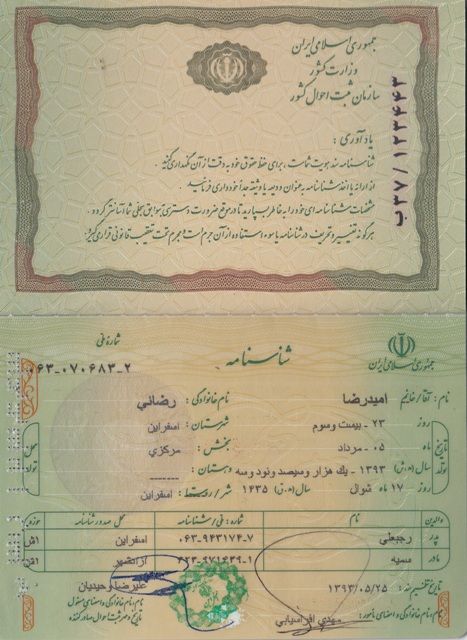 جمهوری اسلامی ایران
وزارت کشور
سازمان ثبت احوال کشور
ب۳۷/۱۲۳۴۴۳
یادآوری :
شناسنامه سند هویت شماست ، برای حفظ حقوق خود به دقت از آن نگهداری کنید .
از ارائه یا اخذ شناسنامه به عنوان ودیعه یا وثیقه جداً خودداری فرمائید .
مشخصات شناسنامه ای خود را به خاطر بسپارید تا در موقع ضرورت دسترسی به سوابق سجلی شما آسانتر گردد .
هرگونه تغییر و تحریف در شناسنامه یا سوء استفاده از آن جرم است و مجرم تحت تعقیب قانونی قرار می گیرد .
جمهوری اسلامی ایران
شناسنامه
شماره ملی
۰۶۳-۰۷۰۶۸۳-۲
نام : آقا/خانم امیدرضا نام خانوادگی : رضائی
تاریخ تولد
روز ۲۳- بیست وسوم شهرستان : اسفراین
ماه ۰۵- مرداد بخش : مرکزی
سال (ه.ش) ۱۳۹۳- یك هزار وسیصد ونود وسه دهستان :
روز ۱۷ ماه شوال سال (ه.ق) ۱۴۳۵ شهر/روستا : اسفراین
محل تولد
والدین نام شماره : ملی/شناسنامه محل صدور شناسنامه حوزه
پدر رجبعلی ۰۶۳-۹۴۳۱۷۴-۷ اسفراین
مادر سمیه
تاریخ تنظیم سند : ۱۳۹۳/۰۵/۲۵ علیرضا وحیدیان
نام،نام خانوادگی و امضای مامور : مهدی افراسیابی
نام،نام خانوادگی و امضای مسئول